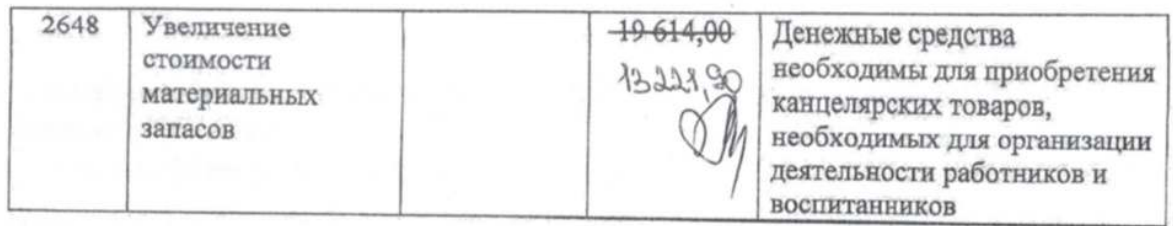 2648
Увеличение
стоимости
материальных
запасов
19 614,00
13221,90
Денежные средства
необходимы для приобретения
канцелярских товаров,
необходимых для организации
деятельности работников и
воспитанников